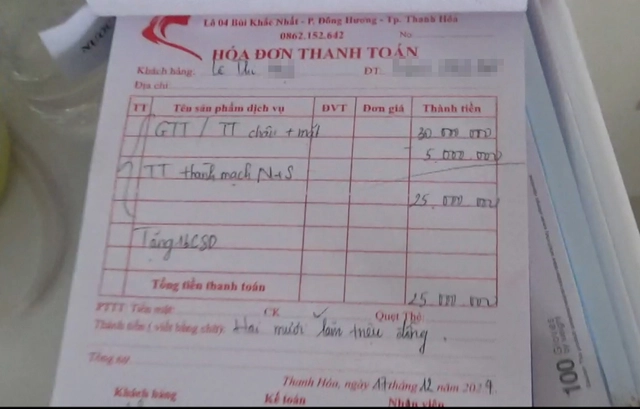 Lô 04 Bùi Khắc Nhất - P. Đông Hương - Tp. Thanh Hóa
0862.152.642 No:
HÓA ĐƠN THANH TOÁN
Khách hàng: Lê Thị ĐT:
Địa chỉ:
TT Tên sản phẩm dịch vụ ĐVT Đơn giá Thành tiền
GTT / TT chân + mắt 30 000 000
5.000.000
TT thanh mạch N+S
25.000 000
Tặng CSD
Tổng tiền thanh toán 25 000 000
PTTT: Tiền mặt: CK ✓ Quẹt Thẻ:
Thành tiền (viết bằng chữ): Hai mươi lăm triệu đồng.
Thanh Hóa, ngày 17 tháng 12 năm 2024.
Khách hàng Kế toán Nhân viên
100